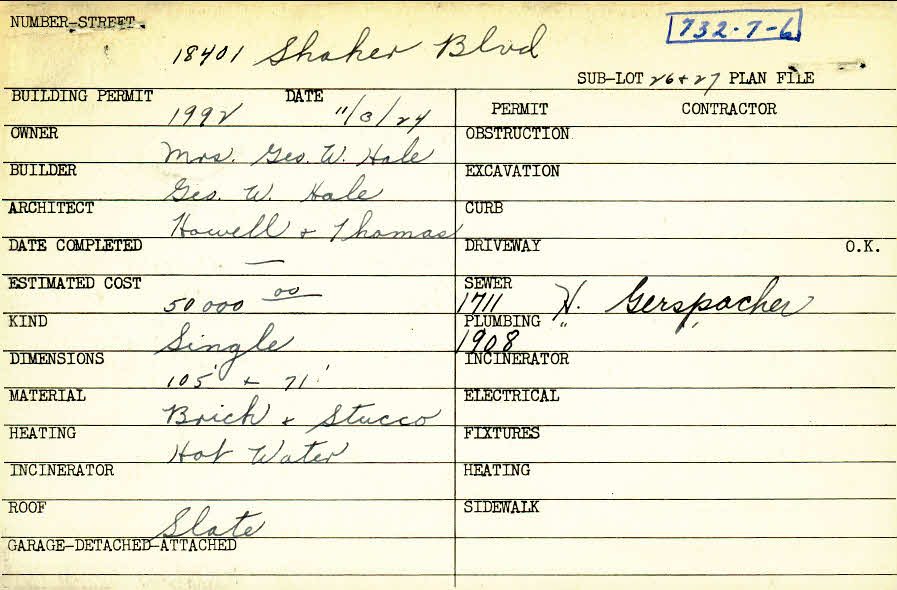 NUMBER-STREET 732-7-6
18401 Shaker Blvd
SUB-LOT 26+27 PLAN FILE
BUILDING PERMIT DATE PERMIT CONTRACTOR
1992 11/3/24
OWNER OBSTRUCTION
Mrs. Geo. W. Hale
BUILDER EXCAVATION
Geo. W. Hale
ARCHITECT CURB
Howell + Thomas
DATE COMPLETED DRIVEWAY O.K.
—
ESTIMATED COST SEWER
50 000 00 1711 H. Gerspacher
KIND PLUMBING " "
Single 1908
DIMENSIONS INCINERATOR
105' + 71'
MATERIAL ELECTRICAL
Brick + Stucco
HEATING FIXTURES
Hot Water
INCINERATOR HEATING
ROOF SIDEWALK
Slate
GARAGE-DETACHED-ATTACHED